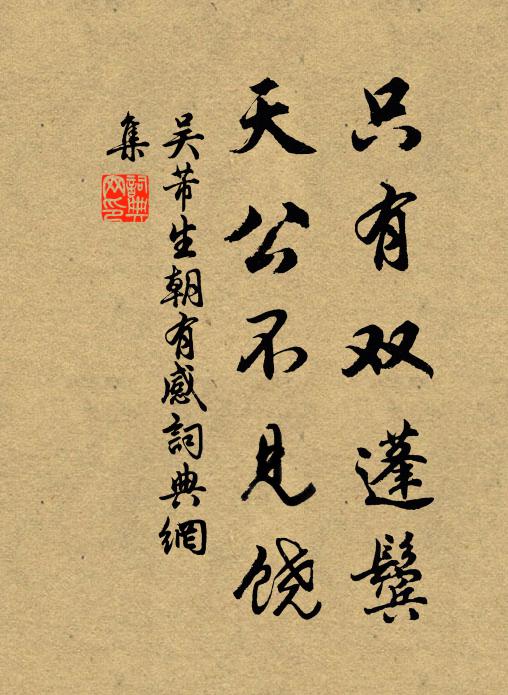 只有双蓬鬓
天公不见饶
吴芾生朝有感詞典網
集
詞典網印